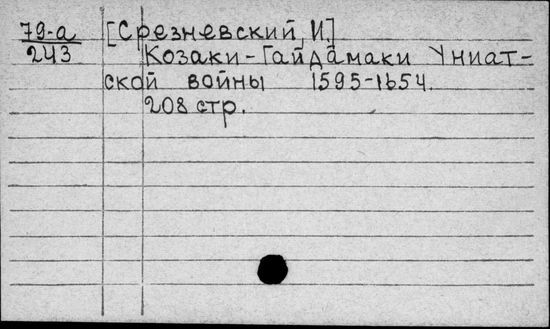 79-а [Срезневский, И.]
243 Козаки-Гайдамаки Униат-
ской войны 1595-1654.
208 стр.